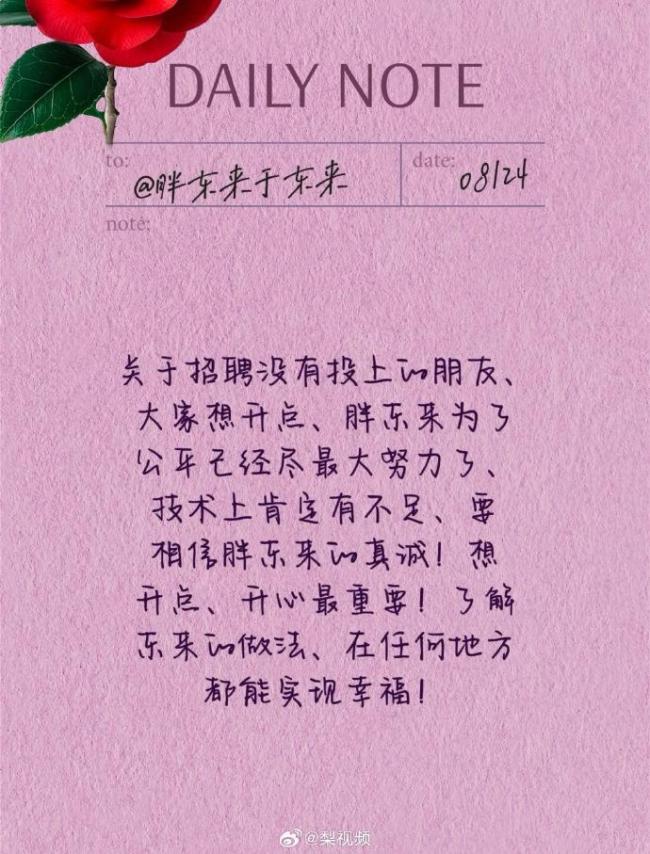 DAILY NOTE
to:
@胖东来于东来
date:
08/24
note:
关于招聘没有投上的朋友、
大家想开点、胖东来为了
公平已经尽最大努力了、
技术上肯定有不足、要
相信胖东来的真诚！想
开点、开心最重要！了解
东来的做法、在任何地方
都能实现幸福！
@梨视频